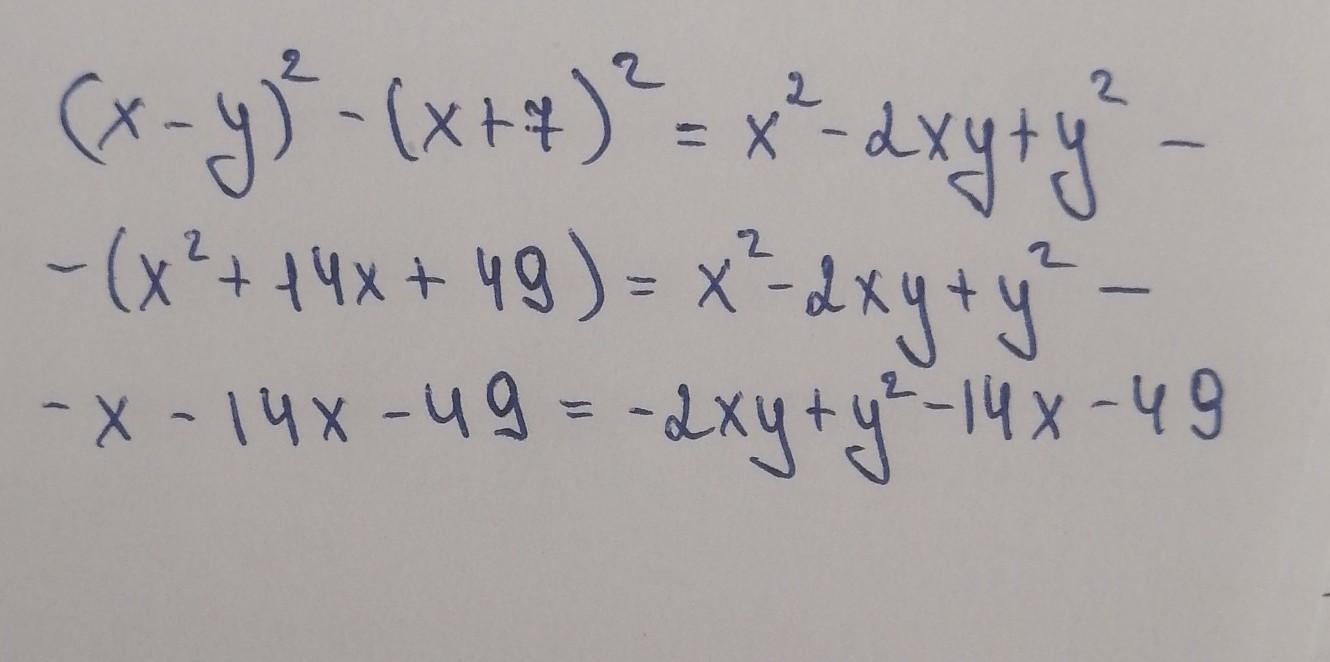 (x-y)² - (x+7)² = x² - 2xy + y² -
- (x² + 14x + 49) = x² - 2xy + y² -
- x - 14x - 49 = -2xy + y² - 14x - 49